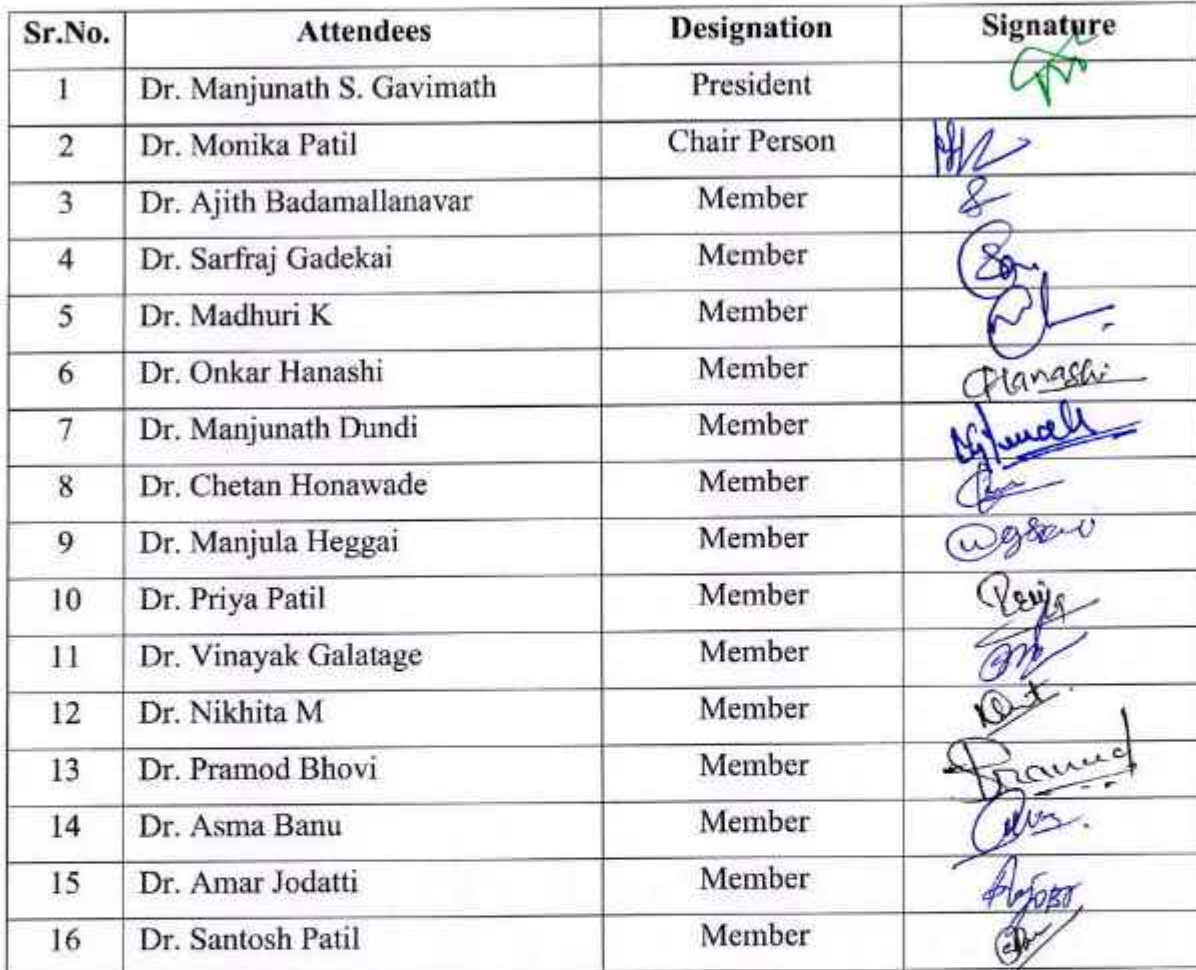 Sr.No. Attendees Designation Signature
1 Dr. Manjunath S. Gavimath President
2 Dr. Monika Patil Chair Person
3 Dr. Ajith Badamallanavar Member
4 Dr. Sarfraj Gadekai Member
5 Dr. Madhuri K Member
6 Dr. Onkar Hanashi Member
7 Dr. Manjunath Dundi Member
8 Dr. Chetan Honawade Member
9 Dr. Manjula Heggai Member
10 Dr. Priya Patil Member Priya
11 Dr. Vinayak Galatage Member
12 Dr. Nikhita M Member
13 Dr. Pramod Bhovi Member Pramod
14 Dr. Asma Banu Member
15 Dr. Amar Jodatti Member
16 Dr. Santosh Patil Member